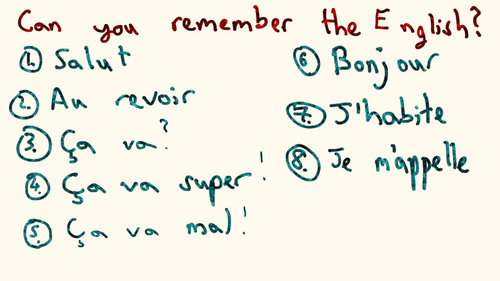 Can you remember the English?
1. Salut
2. Au revoir
3. Ça va?
4. Ça va super!
5. Ça va mal!
6 Bonjour
7. J'habite
8. Je m'appelle